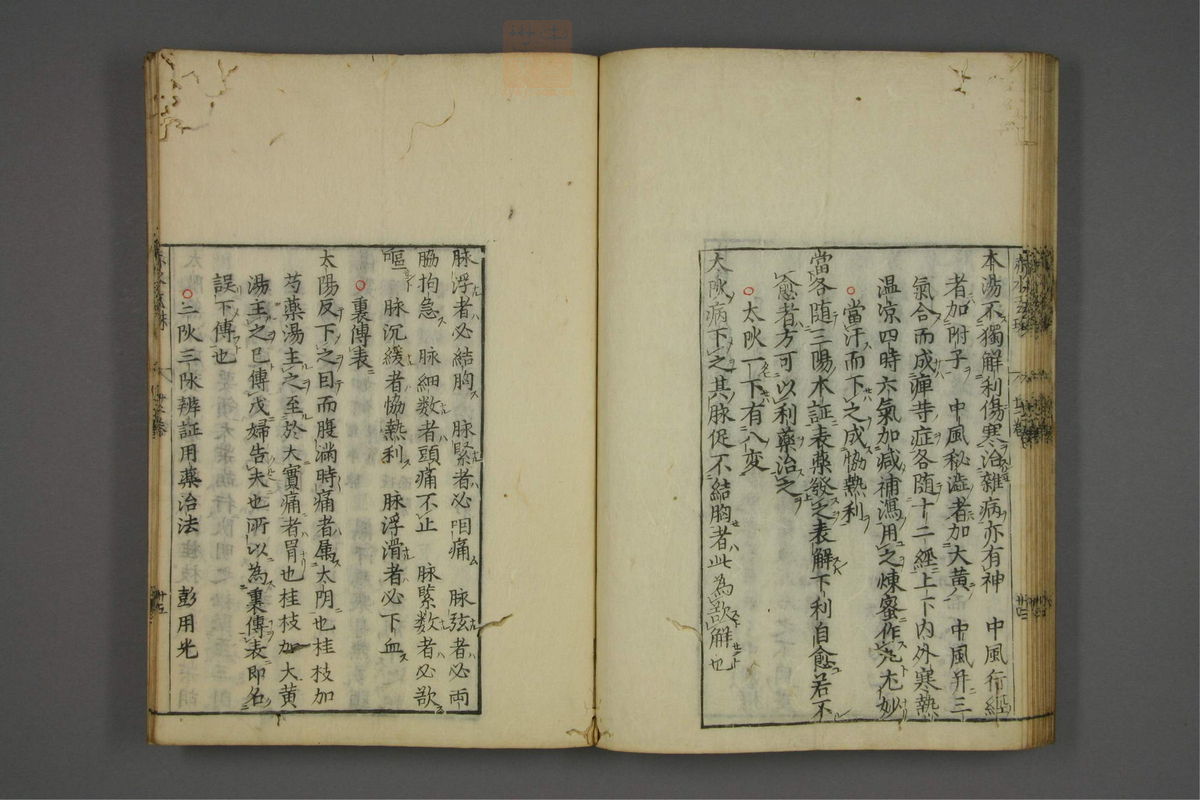 本湯不獨解利傷寒治雜病亦有神　中風行經
者加附子　中風秘澁者加大黄　中風并三
氣合而成痺等症各随十二經上下内外寒熱
温凉四時六氣加减補瀉用之煉蜜作丸尤妙
○當汗而下之成恊熱利
當各随三陽本証表藥發之表解下利自愈若不
愈者方可以利藥治之
○太阦一下有八变
太阦病下之其脉促不結胸者此為欲解也
脉浮者必結胸　脉緊者必咽痛　脉弦者必両
脇拘急　脉細数者頭痛不止　脉緊数者必欲
嘔　脉沉緩者恊熱利　脉浮滑者必下血
○裏傳表
太陽反下之因而腹滿時痛者属太阴也桂枝加
芍藥湯主之至於大實痛者胃也桂枝加大黄
湯主之已傳戊婦告夫也所以為裏傳表即名
誤下傳也
○二阦三阦辨証用藥治法　彭用光